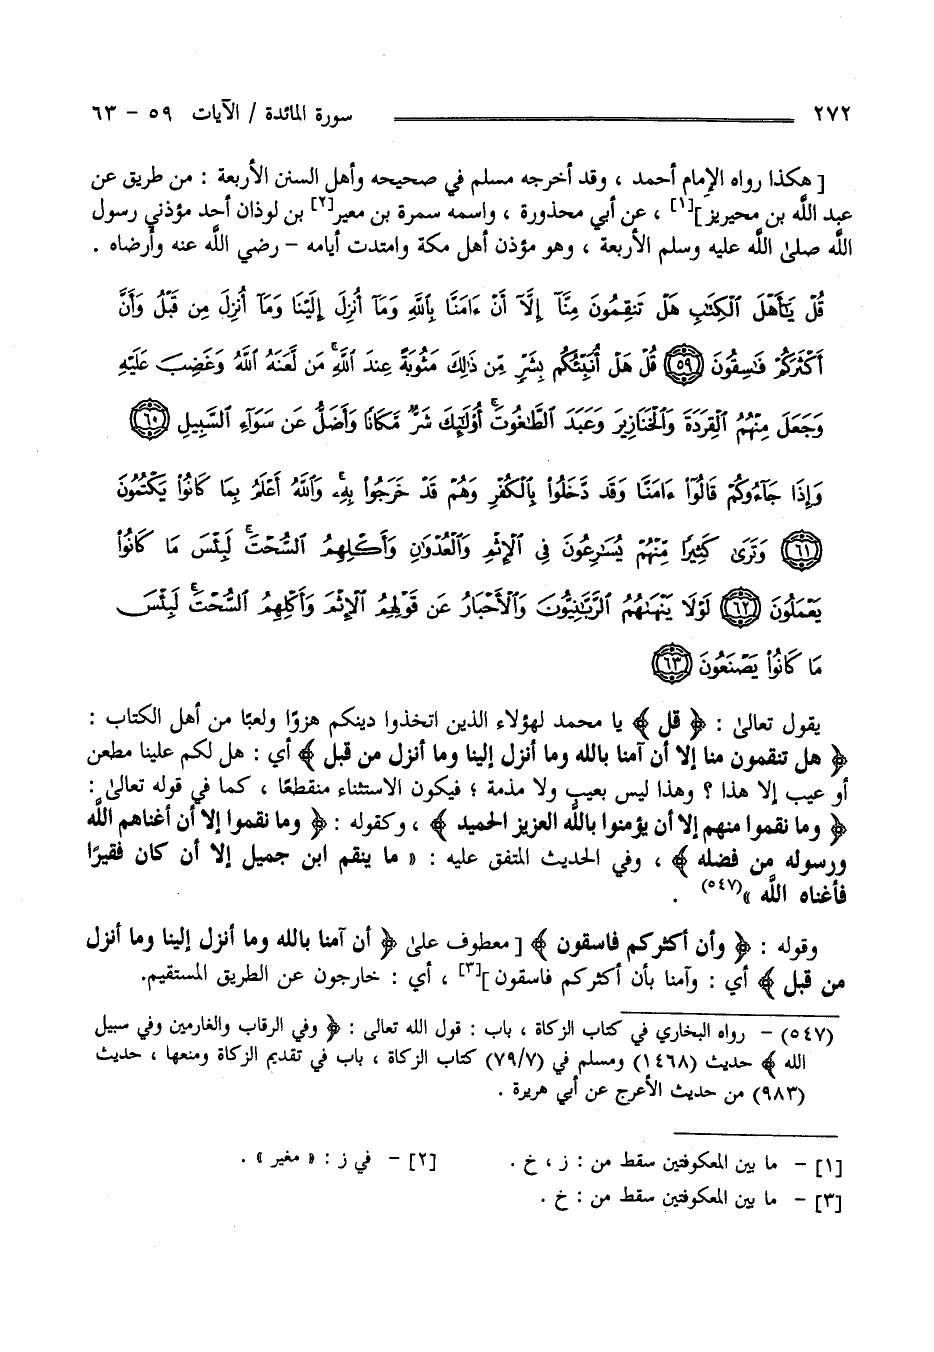 ٢٧٢ سورة المائدة / الآيات ٥٩ - ٦٣
[ هكذا رواه الإمام أحمد ، وقد أخرجه مسلم في صحيحه وأهل السنن الأربعة : من طريق عن
عبد الله بن محيريز ][١] ، عن أبي محذورة ، واسمه سمرة بن معير[٢] بن لوذان أحد مؤذني رسول
الله صلىٰ الله عليه وسلم الأربعة ، وهو مؤذن أهل مكة وامتدت أيامه - رضي الله عنه وأرضاه .
قُلْ يَٰٓأَهْلَ ٱلْكِتَٰبِ هَلْ تَنقِمُونَ مِنَّآ إِلَّآ أَنْ ءَامَنَّا بِٱللَّهِ وَمَآ أُنزِلَ إِلَيْنَا وَمَآ أُنزِلَ مِن قَبْلُ وَأَنَّ
أَكْثَرَكُمْ فَٰسِقُونَ ٥٩ قُلْ هَلْ أُنَبِّئُكُم بِشَرٍّ مِّن ذَٰلِكَ مَثُوبَةً عِندَ ٱللَّهِ ۚ مَن لَّعَنَهُ ٱللَّهُ وَغَضِبَ عَلَيْهِ
وَجَعَلَ مِنْهُمُ ٱلْقِرَدَةَ وَٱلْخَنَازِيرَ وَعَبَدَ ٱلطَّٰغُوتَ ۚ أُو۟لَٰٓئِكَ شَرٌّ مَّكَانًا وَأَضَلُّ عَن سَوَآءِ ٱلسَّبِيلِ ٦٠
وَإِذَا جَآءُوكُمْ قَالُوٓا۟ ءَامَنَّا وَقَد دَّخَلُوا۟ بِٱلْكُفْرِ وَهُمْ قَدْ خَرَجُوا۟ بِهِۦ ۚ وَٱللَّهُ أَعْلَمُ بِمَا كَانُوا۟ يَكْتُمُونَ
٦١ وَتَرَىٰ كَثِيرًا مِّنْهُمْ يُسَٰرِعُونَ فِى ٱلْإِثْمِ وَٱلْعُدْوَٰنِ وَأَكْلِهِمُ ٱلسُّحْتَ ۚ لَبِئْسَ مَا كَانُوا۟
يَعْمَلُونَ ٦٢ لَوْلَا يَنْهَىٰهُمُ ٱلرَّبَّٰنِيُّونَ وَٱلْأَحْبَارُ عَن قَوْلِهِمُ ٱلْإِثْمَ وَأَكْلِهِمُ ٱلسُّحْتَ ۚ لَبِئْسَ
مَا كَانُوا۟ يَصْنَعُونَ ٦٣
يقول تعالىٰ : ﴿ قل ﴾ يا محمد لهؤلاء الذين اتخذوا دينكم هزوًا ولعبًا من أهل الكتاب :
﴿ هل تنقمون منا إلا أن آمنا بالله وما أنزل إلينا وما أنزل من قبل ﴾ أي : هل لكم علينا مطعن
أو عيب إلا هذا ؟ وهذا ليس بعيب ولا مذمة ؛ فيكون الاستثناء منقطعًا ، كما في قوله تعالىٰ :
﴿ وما نقموا منهم إلا أن يؤمنوا بالله العزيز الحميد ﴾ ، وكقوله : ﴿ وما نقموا إلا أن أغناهم الله
ورسوله من فضله ﴾ ، وفي الحديث المتفق عليه : « ما ينقم ابن جميل إلا أن كان فقيرًا
فأغناه الله »(٥٤٧) .
وقوله : ﴿ وأن أكثركم فاسقون ﴾ [ معطوف علىٰ ﴿ أن آمنا بالله وما أنزل إلينا وما أنزل
من قبل ﴾ أي : وآمنا بأن أكثركم فاسقون ][٣] ، أي : خارجون عن الطريق المستقيم.
(٥٤٧) - رواه البخاري في كتاب الزكاة ، باب : قول الله تعالى : ﴿ وفي الرقاب والغارمين وفي سبيل
الله ﴾ حديث (١٤٦٨) ومسلم في (٧٩/٧) كتاب الزكاة ، باب في تقديم الزكاة ومنعها ، حديث
(٩٨٣) من حديث الأعرج عن أبي هريرة .
[١] - ما بين المعكوفتين سقط من : ز ، خ . [٢] - في ز : « مغير » .
[٣] - ما بين المعكوفتين سقط من : خ .